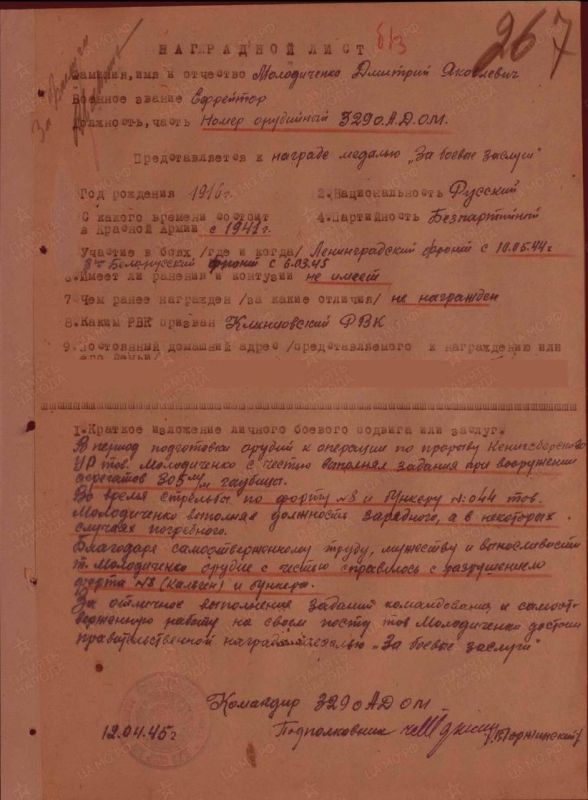 За Боевые
267
НАГРАДНОЙ ЛИСТ б/з
Фамилия, имя и отчество Молодиченко Дмитрий Яковлевич
Военное звание Ефрейтор
Должность, часть Номер орудийный 329 о.А.Д.О.М.
Представляется к награде медалью „За боевые заслуги"
Год рождения 1916г. 2. Национальность Русский
С какого времени состоит
в Красной Армии с 1941г. 4. Партийность Безпартийный
Участие в боях /где и когда/ Ленинградский фронт с 10.05.44г
Белорусский фронт с 6.03.45
6. Имеет ли ранения и контузии не имеет
7. Чем ранее награжден /за какие отличия/ не награжден
8. Каким РВК призван Клинцовский РВК
9. Постоянный домашний адрес /представляемого к награждению или
его семьи/
1. Краткое изложение личного боевого подвига или заслуг.
В период подготовки орудий к операции по прорыву Кенигсбергского
УР тов. Молодиченко с честью выполнял задания при вооружении
агрегатов 305 м/м гаубицы.
Во время стрельбы по форту №8 и бункеру №044 тов.
Молодиченко выполнял должность зарядного, а в некоторых
случаях погребного.
Благодаря самоотверженному труду, мужеству и выносливости
т. Молодиченко орудие с честью справилось с разрушением
форта №8 (Кальген) и бункера.
За отличное выполнение заданий командования и самоот-
верженную работу на своем посту тов Молодиченко достоин
правительственной награды медалью „За боевые заслуги"
Командир 329 оАДОМ
12.04.45г Подполковник